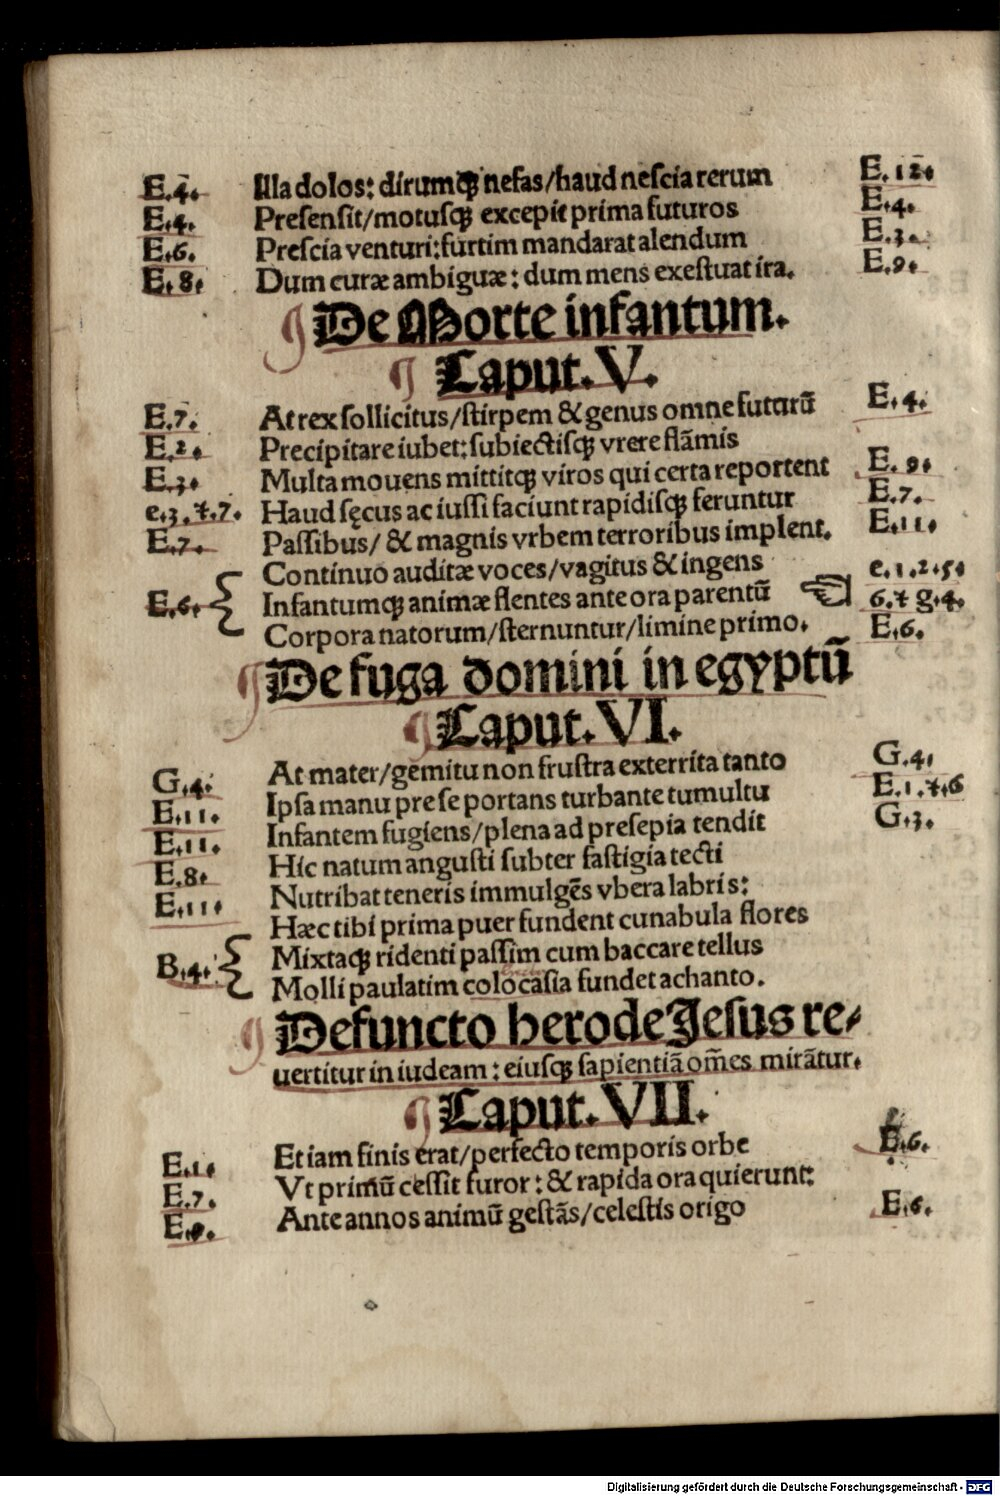 E.4. Illa dolos: dirumqꝫ nefas/haud nescia rerum E.12.
E.4. Presensit/motusqꝫ excepit prima futuros E.4.
E.6. Prescia venturi: furtim mandarat alendum E.3.
E.8. Dum curæ ambiguæ: dum mens exestuat ira. E.9.
¶ De Morte infantum.
¶ Caput. V.
E.7. At rex sollicitus/stirpem & genus omne futurū E.4.
E.2. Precipitare iubet: subiectisqꝫ vrere flāmis
E.3. Multa mouens mittitqꝫ viros qui certa reportent E.9.
e.3.⁊.7. Haud sęcus ac iussi faciunt rapidisqꝫ feruntur E.7.
E.7. Passibus/ & magnis vrbem terroribus implent. E.11.
Continuo auditæ voces/vagitus & ingens e.1.2.5.
E.6. Infantumqꝫ animæ flentes ante ora parentū 6.⁊ g.4.
Corpora natorum/sternuntur/limine primo. E.6.
¶ De fuga domini in egyptū
¶ Caput. VI.
G.4. At mater/gemitu non frustra exterrita tanto G.4.
E.11. Ipsa manu pre se portans turbante tumultu E.1.⁊.6
E.11. Infantem fugiens/plena ad presepia tendit G.3.
E.8. Hic natum angusti subter fastigia tecti
E.11. Nutribat teneris immulgēs vbera labris:
Hæc tibi prima puer fundent cunabula flores
B.4. Mixtaqꝫ ridenti passim cum baccare tellus
Molli paulatim colocasia fundet achanto.
¶ Defuncto herode Jesus re-
uertitur in iudeam: eiusqꝫ sapientiā om̄es mirātur.
¶ Caput. VII.
E.1. Et iam finis erat/perfecto temporis orbe E.6.
E.7. Vt primū cessit furor: & rapida ora quierunt:
E.9. Ante annos animū gestās/celestis origo E.6.
Digitalisierung gefördert durch die Deutsche Forschungsgemeinschaft - DFG